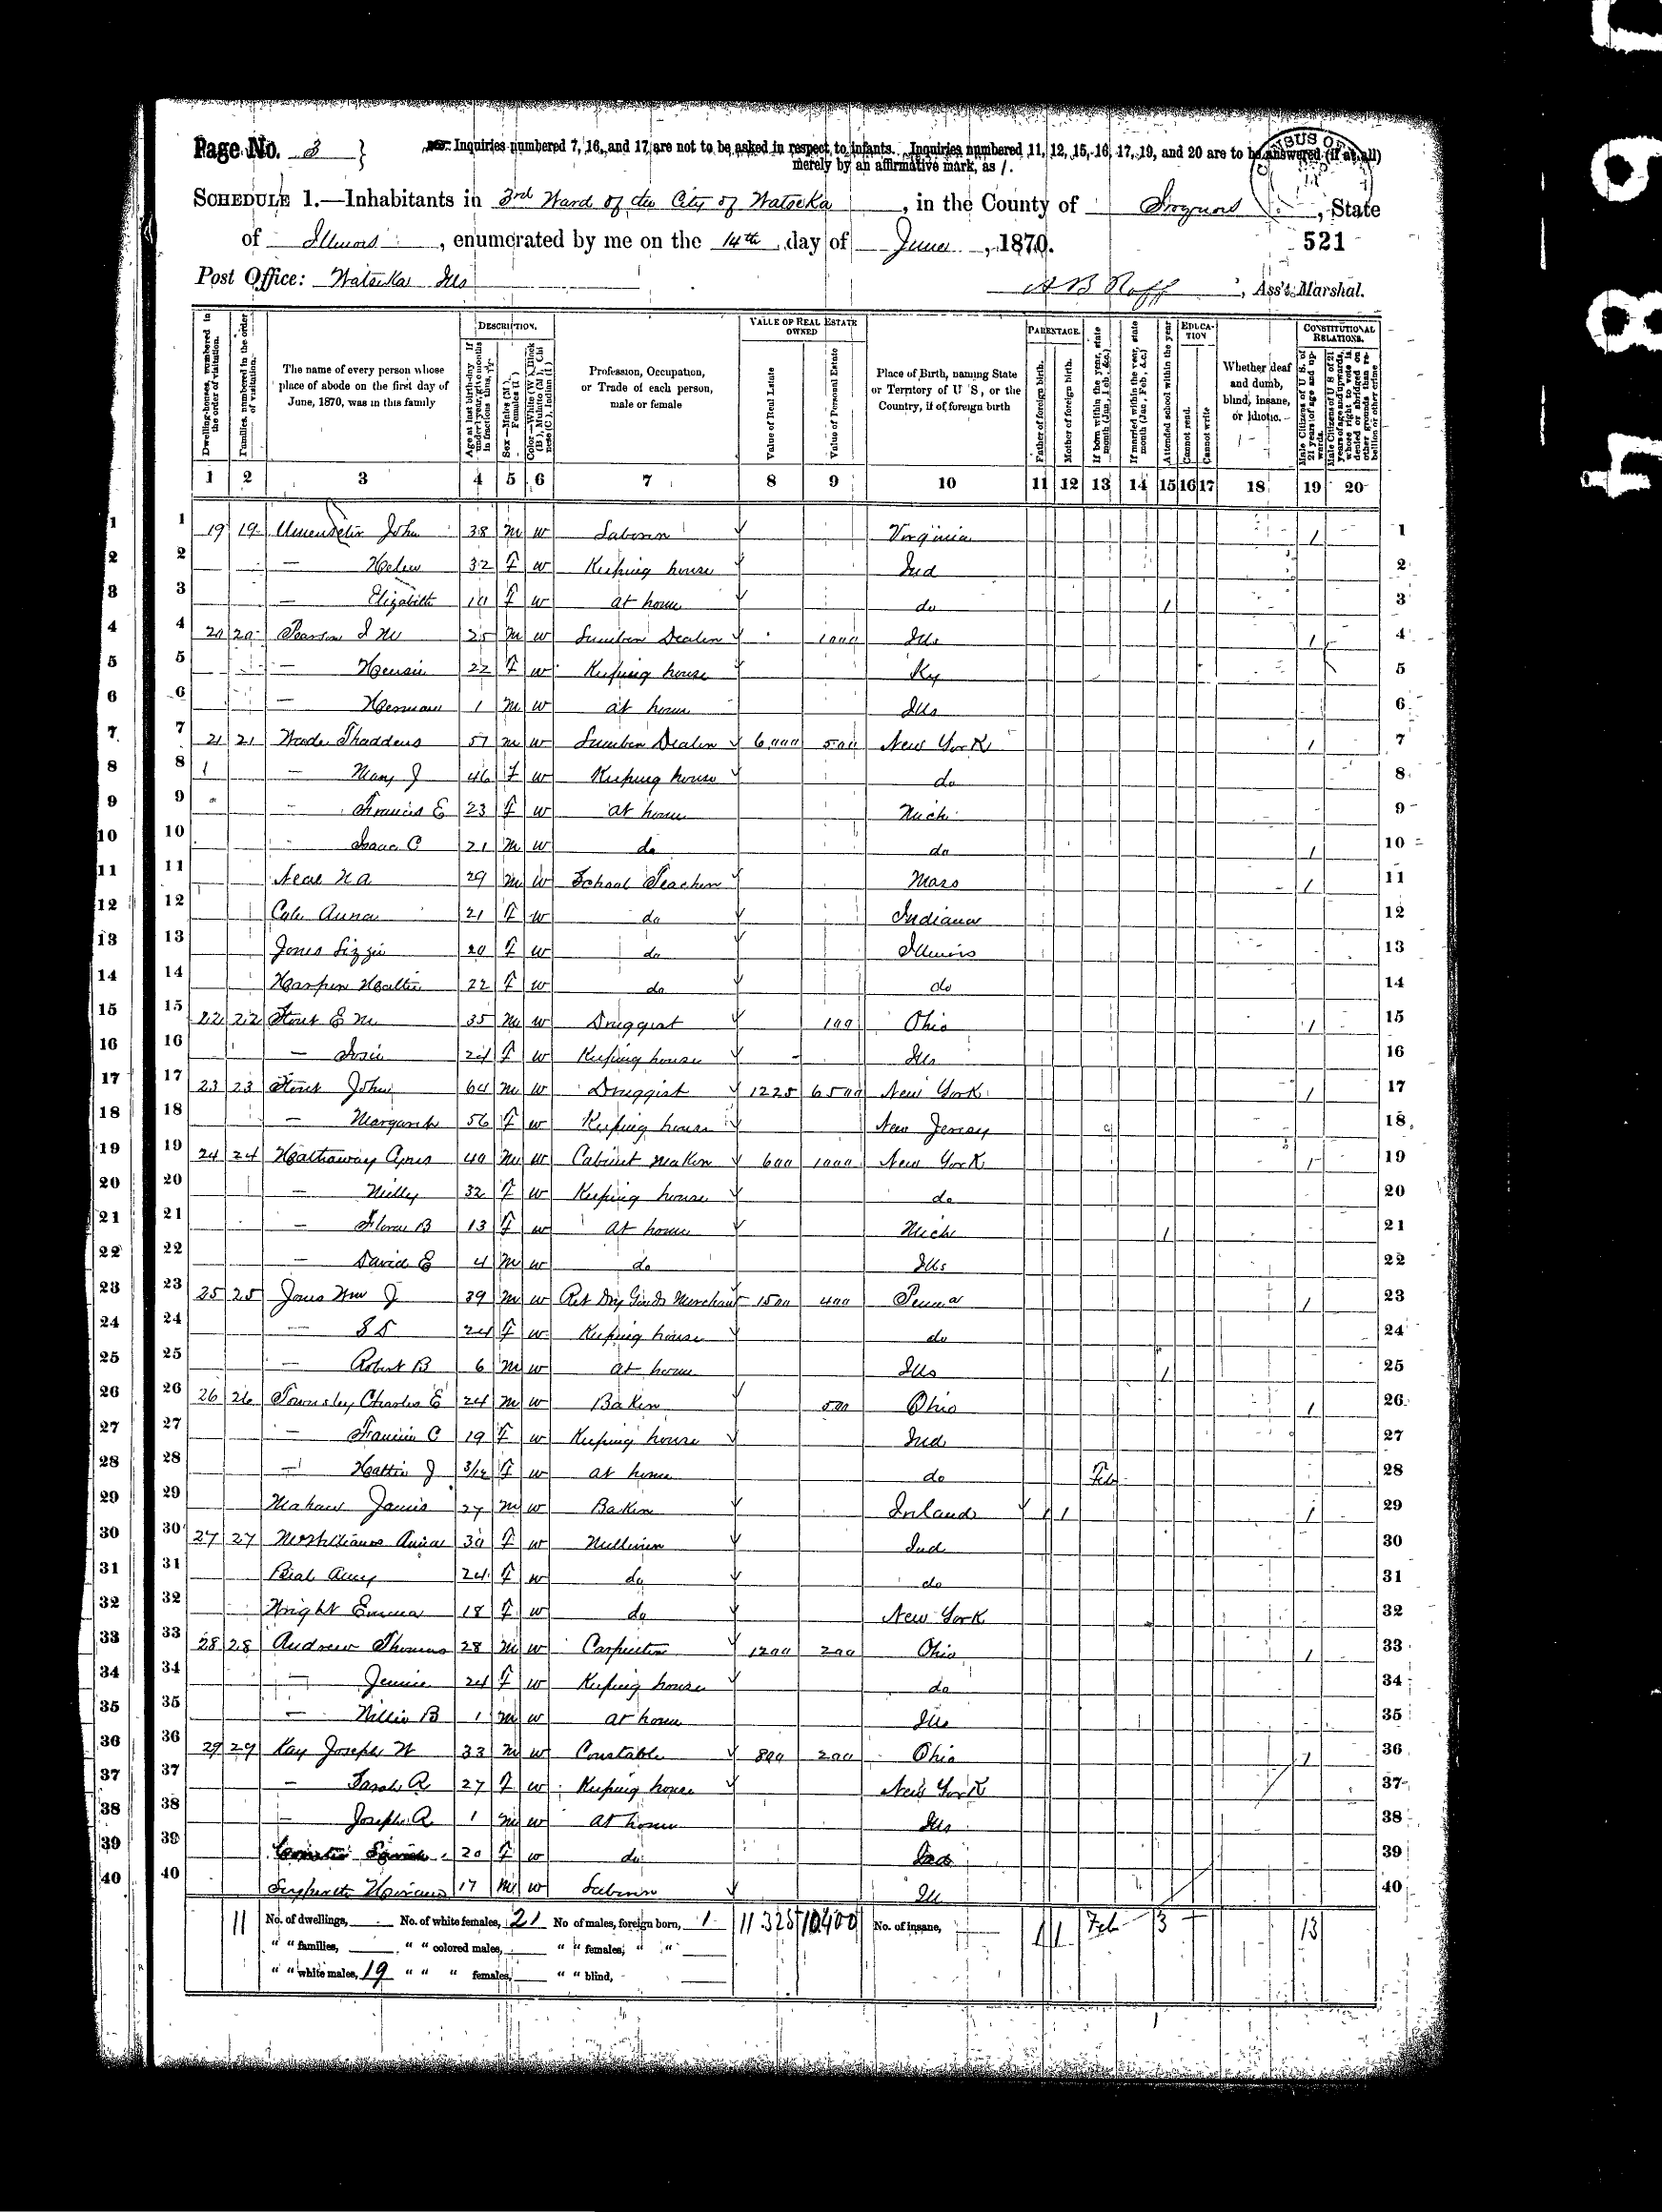 Page No. 3 }
Inquiries numbered 7, 16, and 17 are not to be asked in respect to infants. Inquiries numbered 11, 12, 15, 16, 17, 19, and 20 are to be answered (if at all)
merely by an affirmative mark, as /.
SCHEDULE 1.—Inhabitants in 3rd Ward of the City of Watseka, in the County of Iroquois, State
of Illinois, enumerated by me on the 14th day of June, 1870.
521
Post Office: Watseka Ills
A B Roff, Ass't Marshal.
Dwelling-houses, numbered in the order of visitation.
Families, numbered in the order of visitation.
The name of every person whose place of abode on the first day of June, 1870, was in this family
DESCRIPTION.
Profession, Occupation, or Trade of each person, male or female
VALUE OF REAL ESTATE OWNED
Value of Real Estate
Value of Personal Estate
Place of Birth, naming State or Territory of U S, or the Country, if of foreign birth
PARENTAGE.
Father of foreign birth.
Mother of foreign birth.
If born within the year, state month (Jan, Feb, &c.)
If married within the year, state month (Jan, Feb, &c)
Attended school within the year
EDUCATION
Cannot read.
Cannot write
Whether deaf and dumb, blind, insane, or idiotic.
CONSTITUTIONAL RELATIONS.
1 2 3 4 5 6 7 8 9 10 11 12 13 14 15 16 17 18 19 20
1 19 19 John 38 M W Virginia / 1
2 — Helen 32 F W Keeping house Ind 2
3 — Elizabeth 10 F W at home do / 3
4 20 20 Pearson 25 M W Lumber Dealer 1000 Ills / 4
5 — 22 F W Keeping house Ky 5
6 — Herman 1 M W at home Ills 6
7 21 21 Wade Thaddeus 57 M W Lumber Dealer 6000 500 New York / 7
8 — Mary J 46 F W Keeping house do 8
9 — Francis E 23 F W at home Mich 9
10 — Isaac C 21 M W do do / 10
11 Neal 29 M W School Teacher Mass / 11
12 Cole Anna 21 F W do Indiana 12
13 Jones Lizzie 20 F W do Illinois 13
14 Harper Hattie 22 F W do do 14
15 22 22 Stout E M 35 M W Druggist 100 Ohio / 15
16 — Josie 24 F W Keeping house Ills 16
17 23 23 Stout John 64 M W Druggist 1225 6500 New York / 17
18 — Margaret 56 F W Keeping house New Jersey 18
19 24 24 Hathaway 40 M W Cabinet Maker 600 1000 New York / 19
20 — 32 F W Keeping house do 20
21 — Flora B 13 F W at home Mich / 21
22 — David E 4 M W do Ills 22
23 25 25 Jones Wm J 39 M W Ret Dry Goods Merchant 1500 400 Penna / 23
24 — 24 F W Keeping house do 24
25 — Robert B 6 M W at home Ills / 25
26 26 26 Townsley Charles E 24 M W Baker 500 Ohio / 26
27 — Francis C 19 F W Keeping house Ind 27
28 — Hattie J 3/12 F W at home do Feb 28
29 James 27 M W Baker Ireland / / / 29
30 27 27 McWilliams Anna 30 F W Milliner Ind 30
31 Amy 24 F W do do 31
32 Wright Emma 18 F W do New York 32
33 28 28 Andrew Thomas 28 M W Carpenter 1200 200 Ohio / 33
34 — Jennie 24 F W Keeping house do 34
35 — Willie B 1 M W at home Ills 35
36 29 29 Kay Joseph W 33 M W Constable 800 200 Ohio / 36
37 — Sarah A 27 F W Keeping house New York 37
38 — Joseph A 1 M W at home Ills 38
39 20 F W do 39
40 17 M W Ill 40
11 No. of dwellings, No. of white females, 21 No of males, foreign born, 1 11 325 10400 No. of insane, 1 1 Feb 3 13
" " families, " " colored males, " " females, " "
" " white males, 19 " " " females, " " blind,